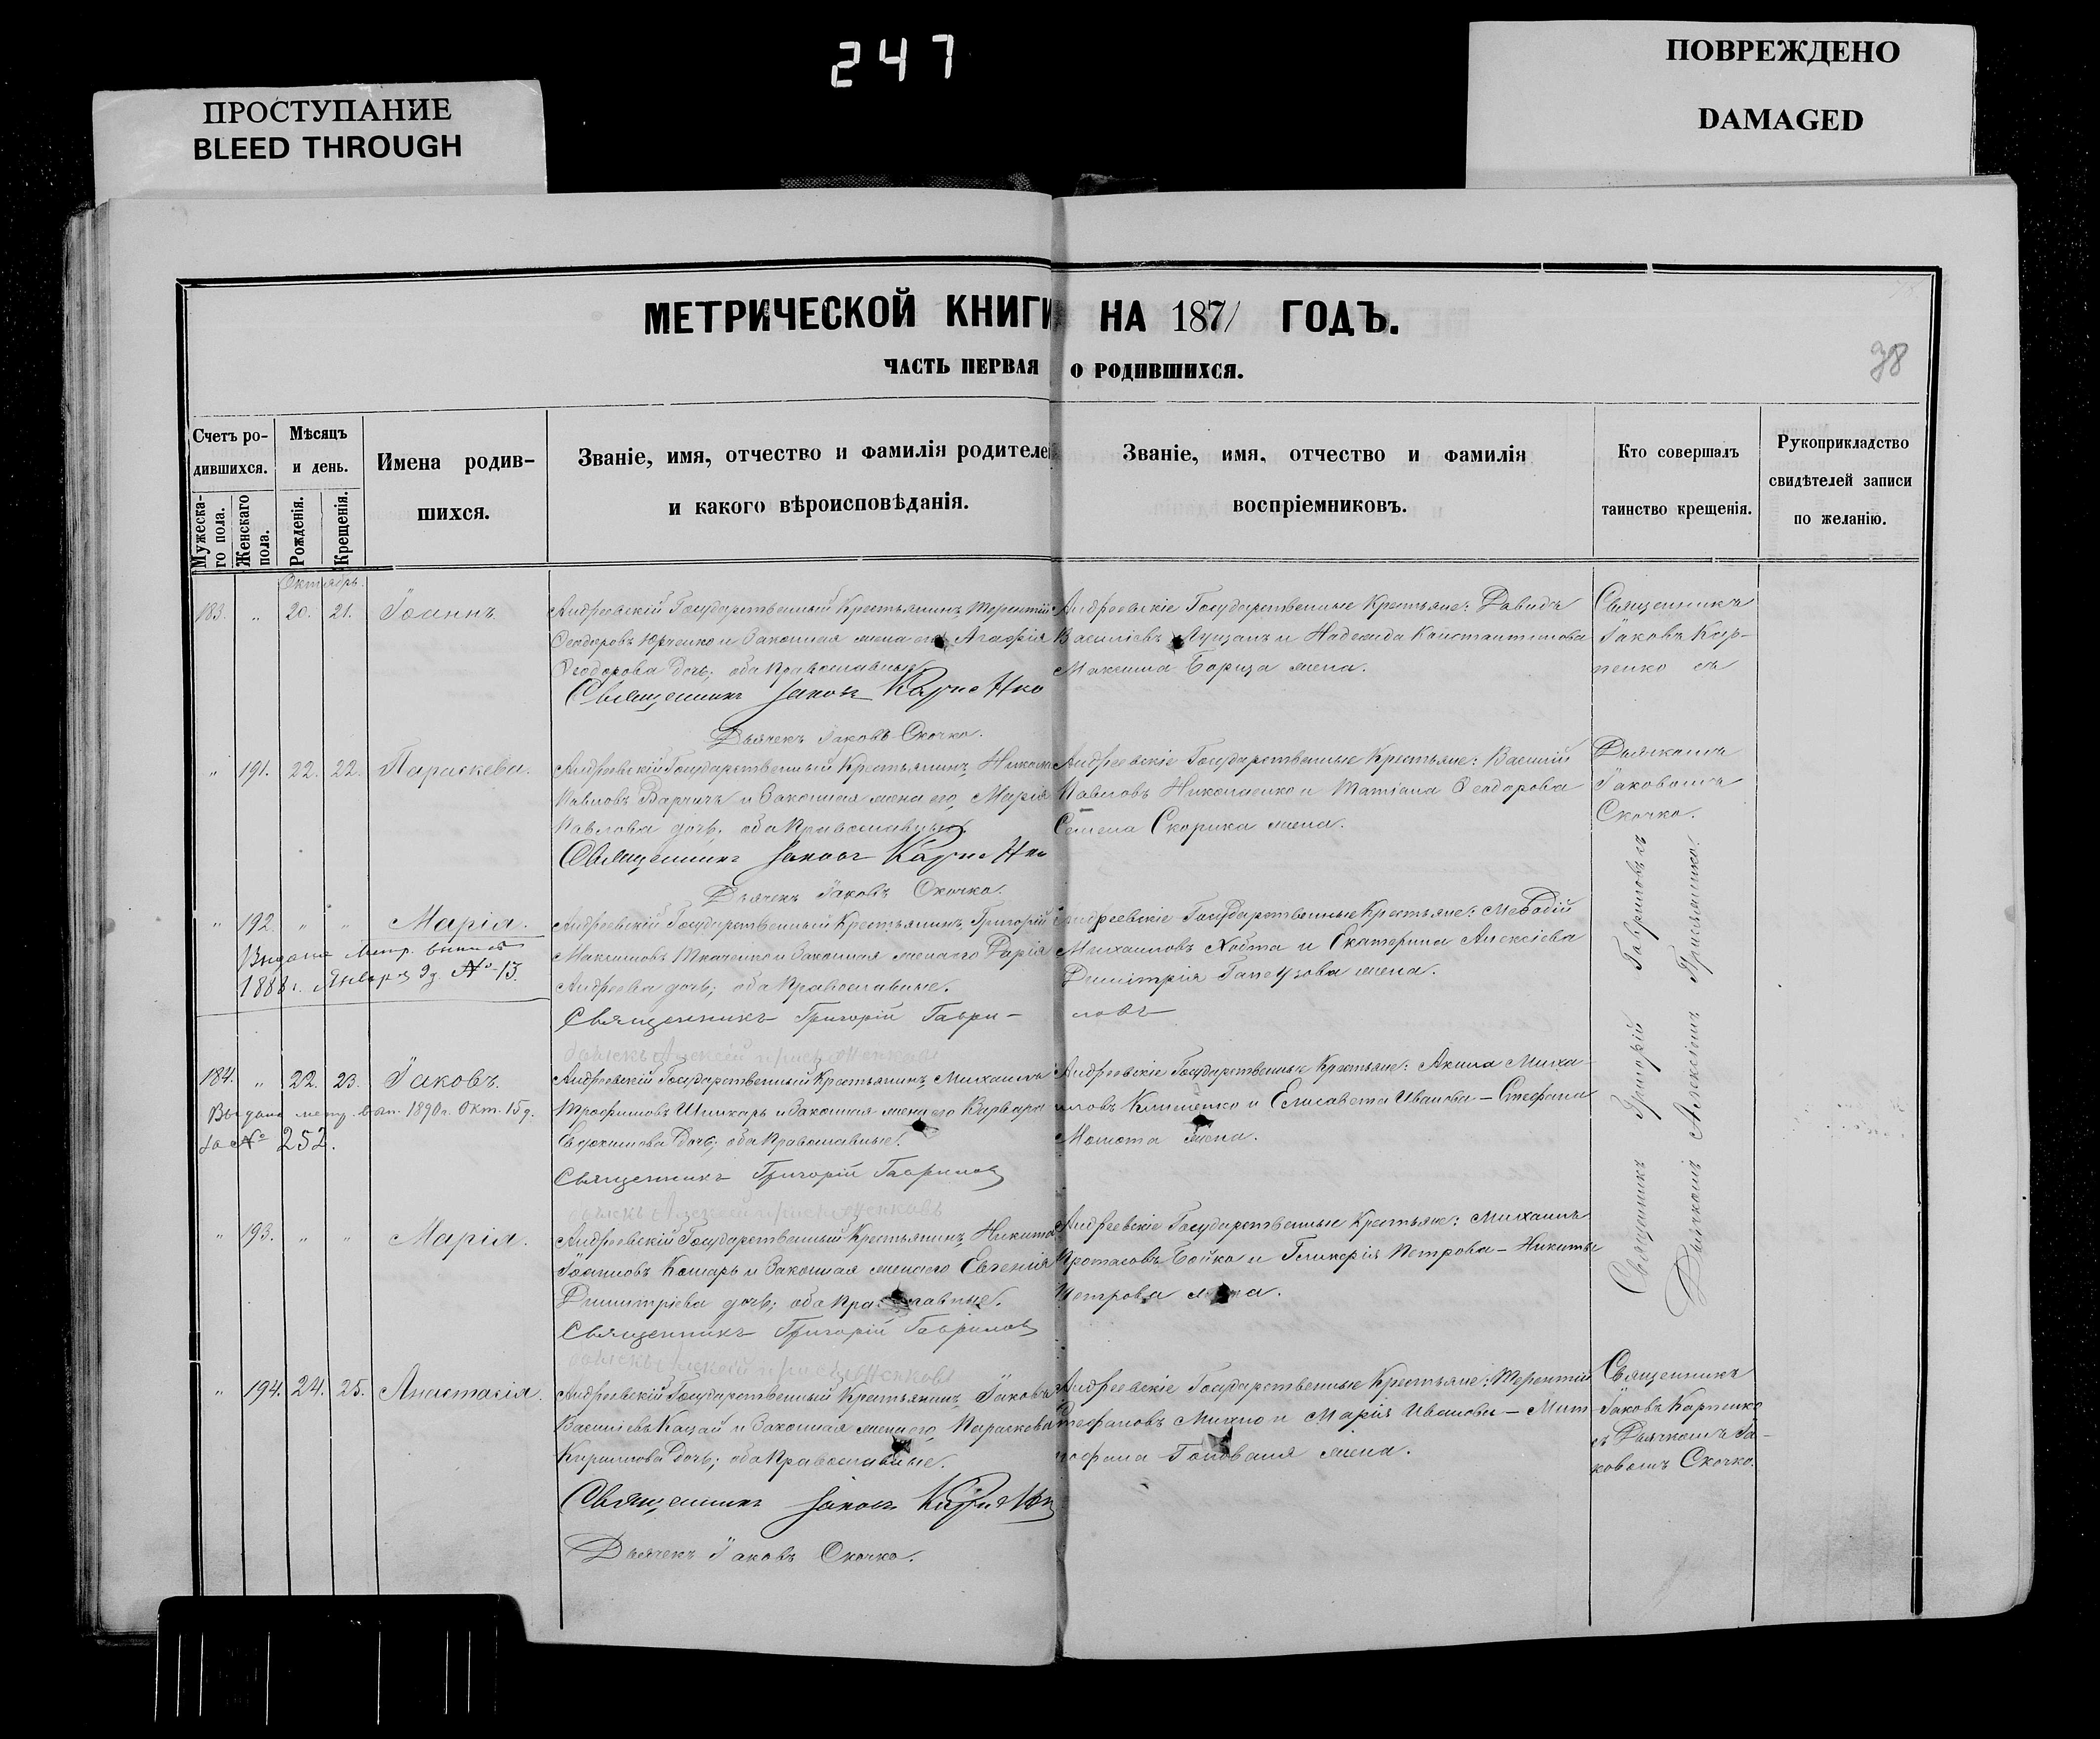 247
ПРОСТУПАНИЕ
BLEED THROUGH
ПОВРЕЖДЕНО
DAMAGED
МЕТРИЧЕСКОЙ КНИГИ НА 1871 ГОДЪ.
ЧАСТЬ ПЕРВАЯ О РОДИВШИХСЯ.
38
Счетъ ро-
дившихся.
Мужеска-
го пола.
Женскаго
пола.
Мѣсяцъ
и день.
Рожденія.
Крещенія.
Имена родив-
шихся.
Званіе, имя, отчество и фамилія родителей
и какого вѣроисповѣданія.
Званіе, имя, отчество и фамилія
воспріемниковъ.
Кто совершалъ
таинство крещенія.
Рукоприкладство
свидѣтелей записи
по желанію.
Октябрь.
183. " 20. 21. Іоаннъ.
Андреевскій Государственный Крестьянинъ Терентій
Ѳеодоровъ Юрченко и Законная жена его Агафія
Ѳеодорова дочь; оба Православные.
Священникъ Іаковъ Карпенко
Дьячекъ Іаковъ Скочко.
Андреевскіе Государственные Крестьяне: Давидъ
Василіевъ Луцанъ и Надежда Константинова
Максима Борща жена.
Священникъ
Іаковъ Кар-
пенко съ
Дьячкомъ
Іаковомъ
Скочко.
" 191. 22. 22. Параскева.
Андреевскій Государственный Крестьянинъ Никола
Павловъ Варчичъ и Законная жена его Марія
Павлова дочь; оба Православные.
Священникъ Іаковъ Карпенко
Дьячекъ Іаковъ Скочко.
Андреевскіе Государственные Крестьяне: Василій
Павловъ Николаенко и Татіана Ѳеодорова
Семена Скорика жена.
" 192. " " Марія.
Выдана Метр. выпись
1888 г. Января 9 д. № 13.
Андреевскій Государственный Крестьянинъ Григорій
Максимовъ Ткаченко и Законная жена его Дарія
Андреева дочь; оба Православные.
Священникъ Григорій Гаври-
ловъ
Андреевскіе Государственные Крестьяне: Меѳодій
Михаиловъ Хобта и Екатерина Алексіева
Димитрія жена.
Священникъ Григорій Гавриловъ съ
Дьячкомъ Алексіемъ
184. " 22. 23. Іаковъ.
Выдана метр. вып. 1890 г. Окт. 15 д.
за № 252.
Андреевскій Государственный Крестьянинъ Михаилъ
Трофимовъ Шинкарь и Законная жена его Варвара
Евфимова дочь; оба Православные.
Священникъ Григорій Гавриловъ
Андреевскіе Государственные Крестьяне: Акила Миха-
иловъ Клименко и Елисавета Иванова – Стефана
жена.
" 193. " " Марія.
Андреевскій Государственный Крестьянинъ Никита
Іоанновъ Комарь и Законная жена его Евгенія
Димитріева дочь; оба Православные.
Священникъ Григорій Гавриловъ
Андреевскіе Государственные Крестьяне: Михаилъ
Протасовъ Бойко и Гликерія Петрова – Никиты
Петрова жена.
" 194. 24. 25. Анастасія.
Андреевскій Государственный Крестьянинъ Іаковъ
Василіевъ Кацай и Законная жена его Параскева
Кириллова дочь; оба Православные.
Священникъ Іаковъ Карпенко
Дьячекъ Іаковъ Скочко.
Андреевскіе Государственные Крестьяне: Терентій
Стефановъ Михно и Марія Иванова – Мит-
рофана Голованя жена.
Священникъ
Іаковъ Карпенко
съ Дьячкомъ Іа-
ковомъ Скочко.